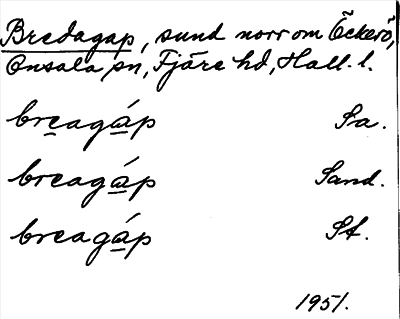 Bredagap, sund norr om Öckerö,
Onsala sn, Fjäre hd, Hall. l.
breagáp Sa.
breagáp Sand.
breagáp St.
1951.